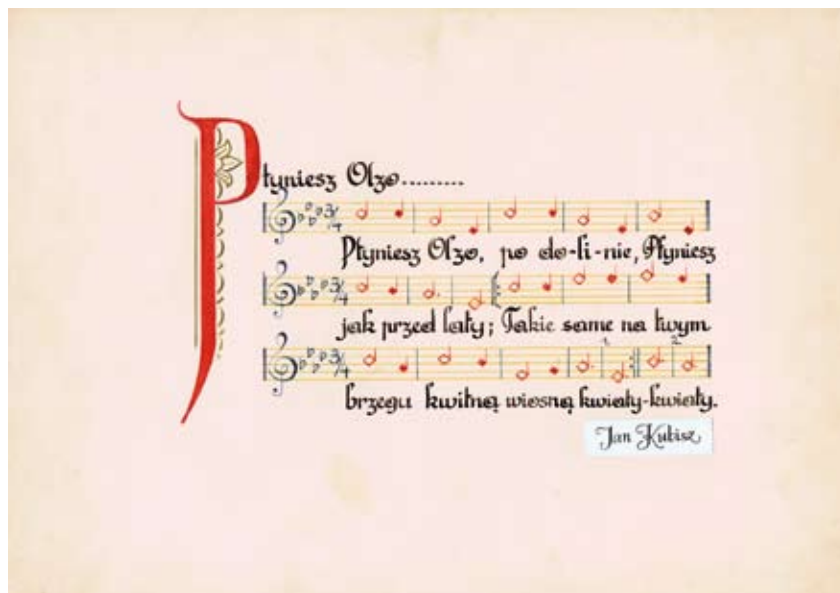 Płyniesz Olzo.........
Płyniesz Olzo, po do-li-nie, Płyniesz
jak przed laty; Takie same na twym
brzegu kwitną wiosną kwiaty-kwiaty.
Jan Kubisz